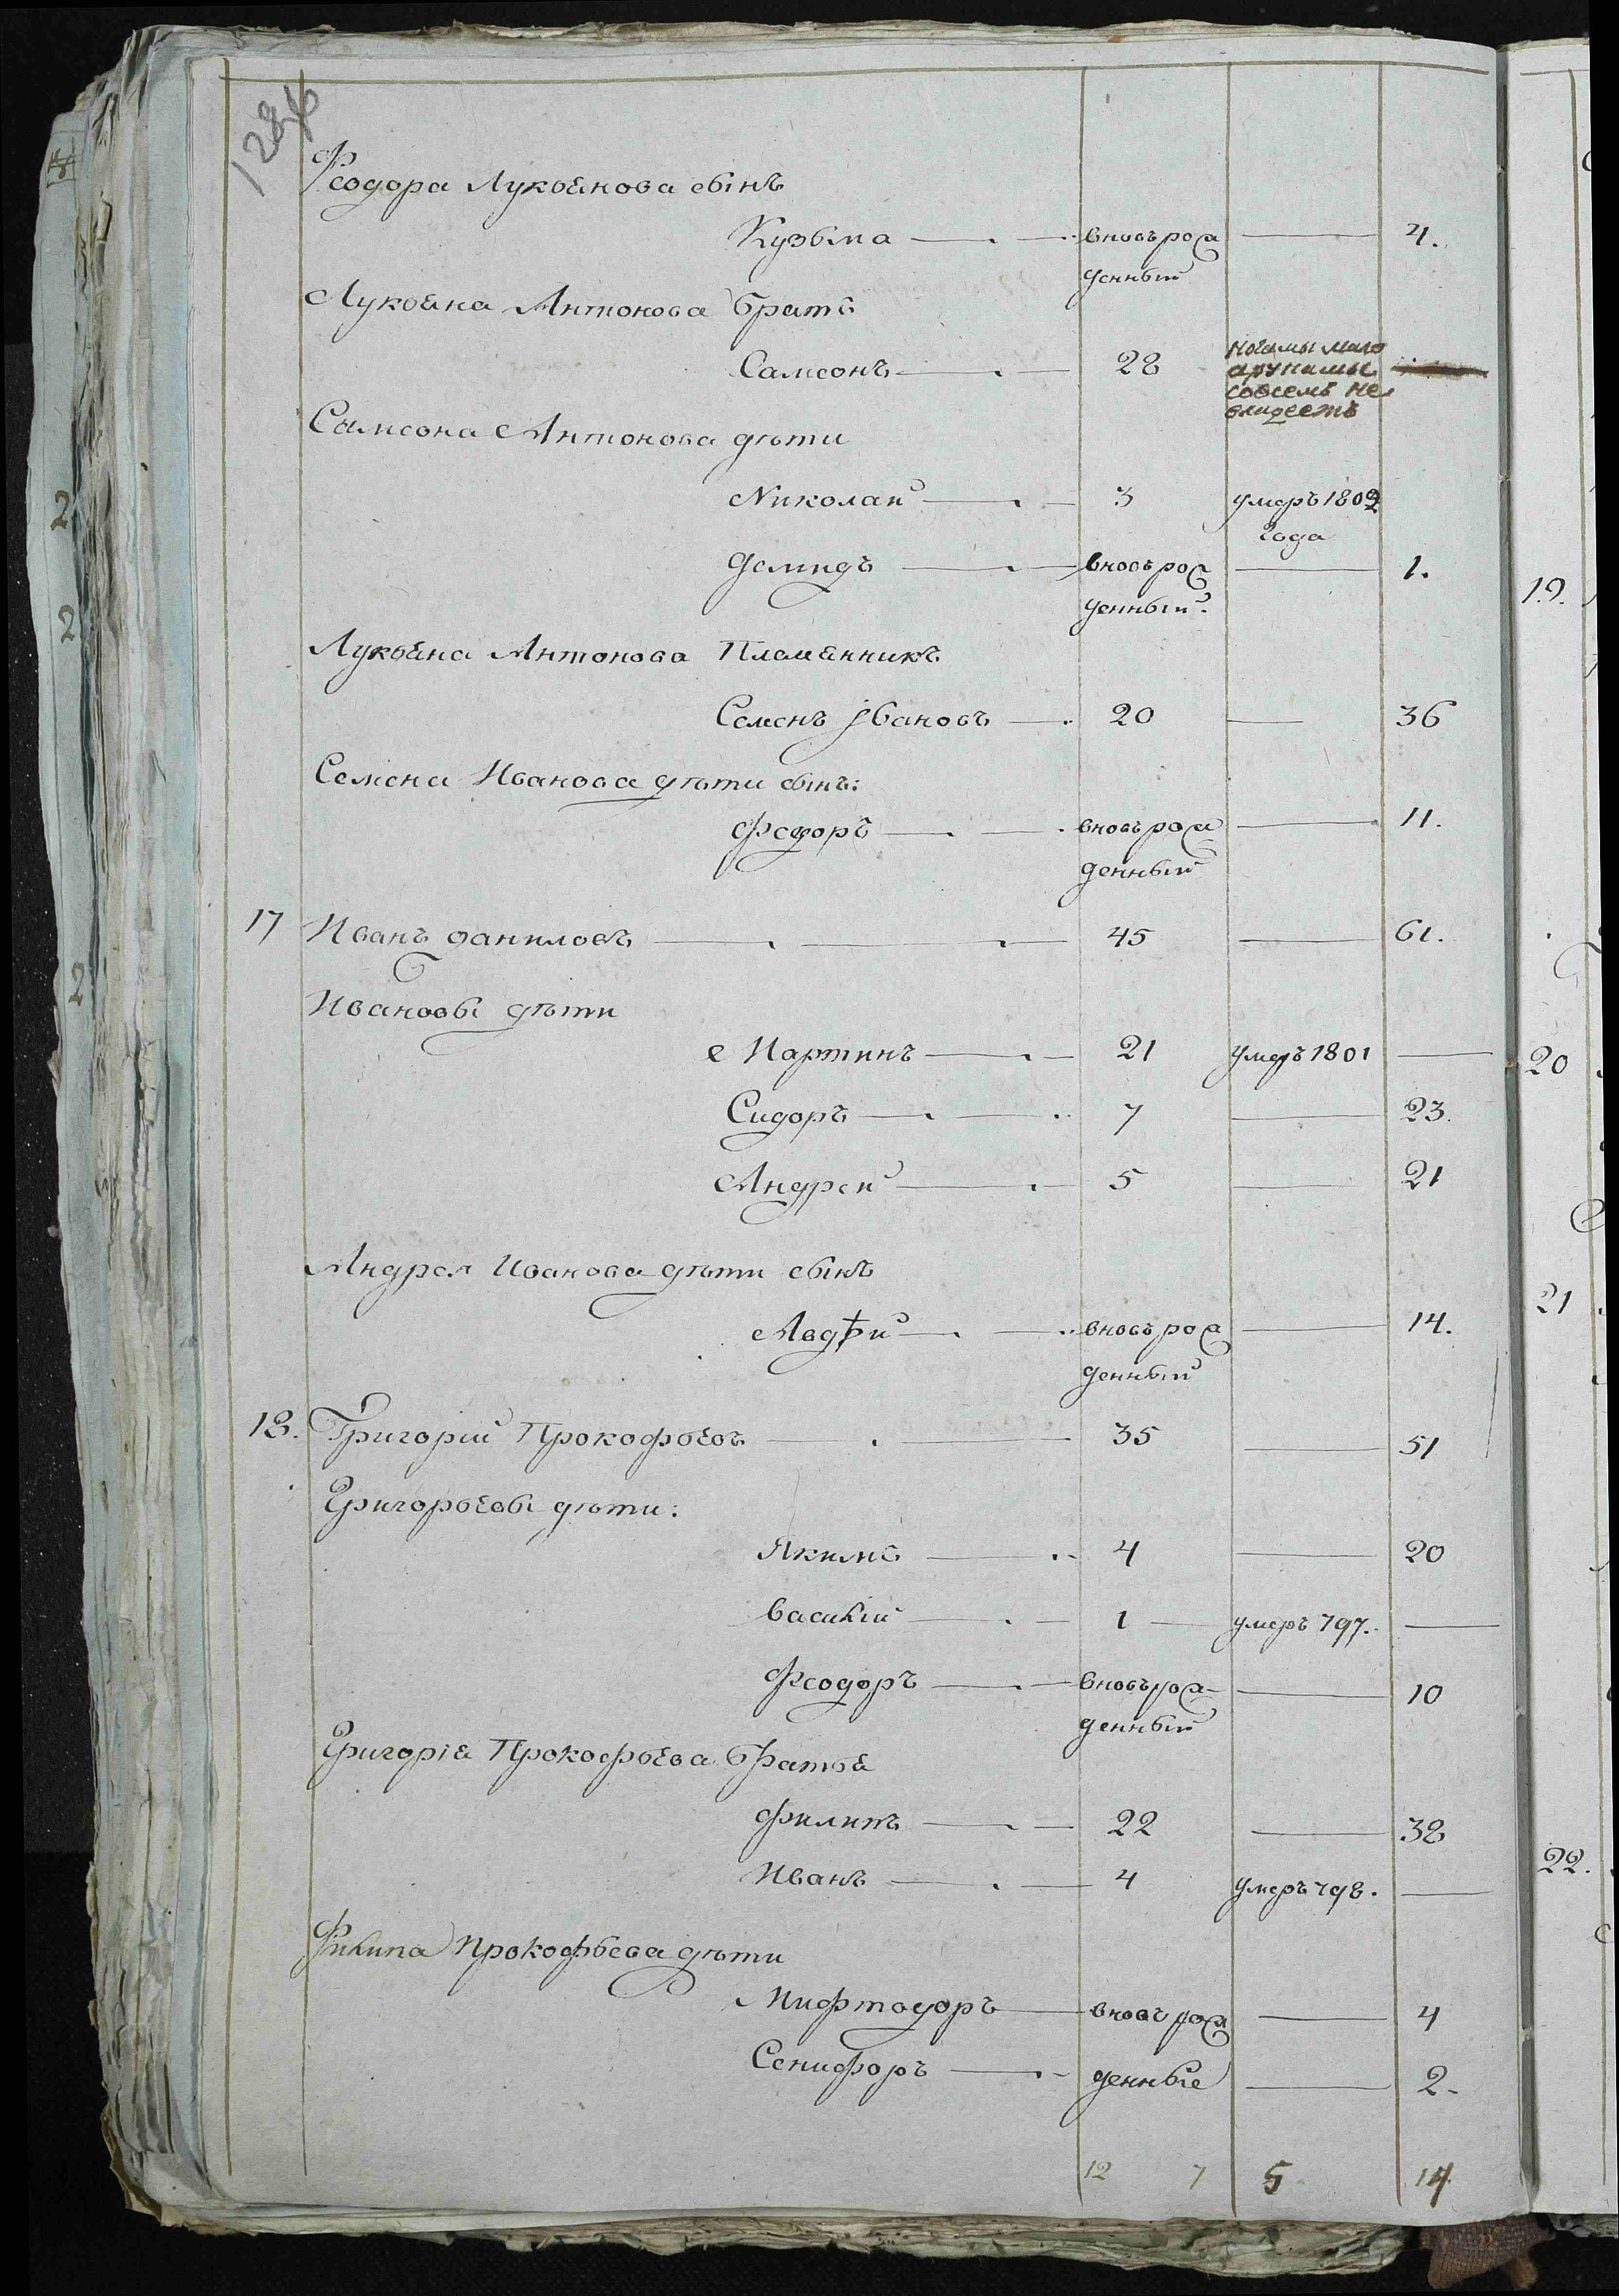 Феодора Лукьянова сынъ
Кузьма вновь рож 4.
денный
Лукьяна Антонова братъ
Самсонъ 28 ногамы мало
арукамы
совсемъ не
владеетъ
Самсона Антонова дѣти
Николай 3 умеръ 1802
года
Демидъ вновь рож 1.
денный.
Лукьяна Антонова Племянникъ
Семенъ Ивановъ 20 36
Семена Иванова дѣти сынъ:
Федоръ вновь рож 11.
денный
17 Иванъ Даниловъ 45 61.
Ивановы дѣти
Мартинъ 21 умеръ 1801
Сидоръ 7 23.
Андрей 5 21
Андрея Иванова дѣти сынъ
Авдѣй вновь рож 14.
денный
18. Григорій Прокофьевъ 35 51
Григорьевы дѣти:
Якимъ 4 20
Василій 1 умеръ 797.
Феодоръ вновь рож 10
денный
Григорія Прокофьева братья
Филипъ 22 38
Иванъ 4 умеръ 798.
Филипа Прокофьева дѣти
вновь рож 4
денные 2.
12 7 5 14
19.
20
21
22.